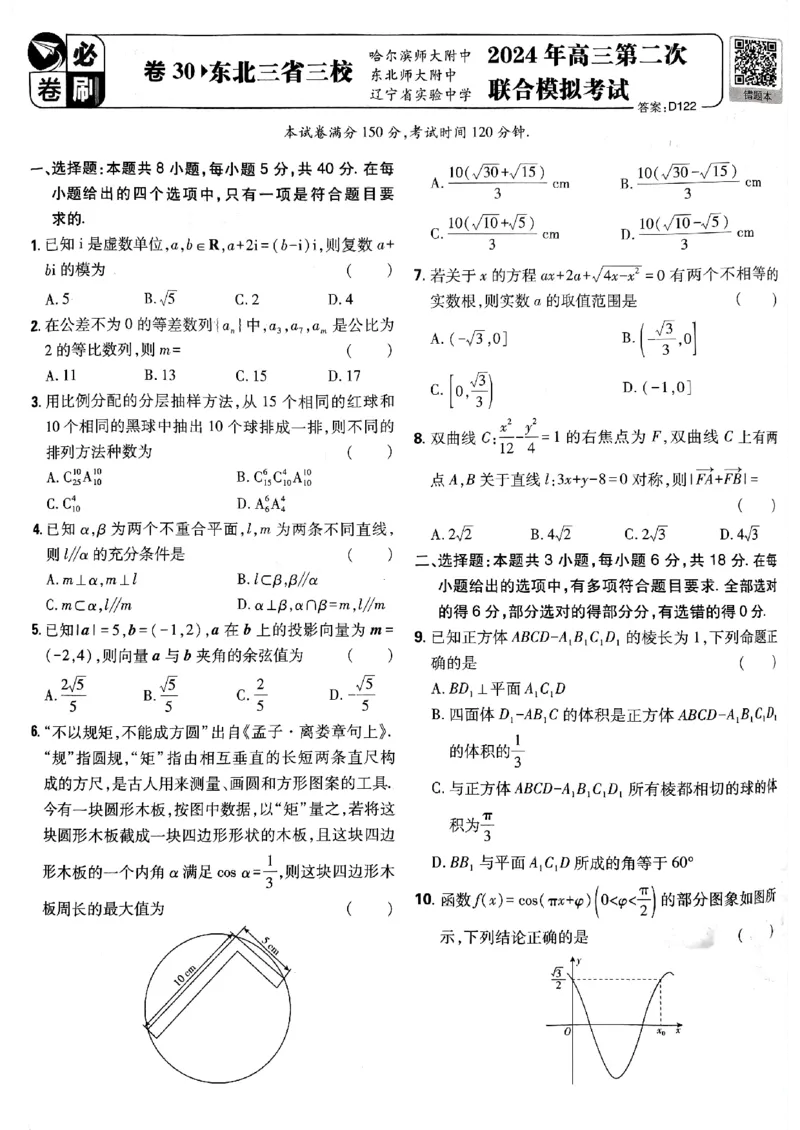 必
卷刷
卷 30▸东北三省三校
哈尔滨师大附中
东北师大附中
辽宁省实验中学
2024 年高三第二次
联合模拟考试
答案:D122
错题本
本试卷满分 150 分,考试时间 120 分钟.
一、选择题:本题共 8 小题,每小题 5 分,共 40 分. 在每
小题给出的四个选项中,只有一项是符合题目要
求的.
1. 已知 i 是虚数单位,a,b∈R,a+2i=(b-i)i,则复数 a+
bi 的模为 ( )
A. 5 B. √5 C. 2 D. 4
2. 在公差不为 0 的等差数列{aₙ}中,a₃,a₇,aₘ 是公比为
2 的等比数列,则 m= ( )
A. 11 B. 13 C. 15 D. 17
3. 用比例分配的分层抽样方法,从 15 个相同的红球和
10 个相同的黑球中抽出 10 个球排成一排,则不同的
排列方法种数为 ( )
A. C₂₅¹⁰A₁₀¹⁰ B. C₁₅⁶C₁₀⁴A₁₀¹⁰
C. C₁₀⁴ D. A₆⁶A₄⁴
4. 已知 α,β 为两个不重合平面,l,m 为两条不同直线,
则 l//α 的充分条件是 ( )
A. m⊥α,m⊥l B. l⊂β,β//α
C. m⊂α,l//m D. α⊥β,α∩β=m,l//m
5. 已知|a|=5,b=(-1,2),a 在 b 上的投影向量为 m=
(-2,4),则向量 a 与 b 夹角的余弦值为 ( )
A. 2√5/5 B. √5/5 C. 2/5 D. -√5/5
6. “不以规矩,不能成方圆”出自《孟子·离娄章句上》.
“规”指圆规,“矩”指由相互垂直的长短两条直尺构
成的方尺,是古人用来测量、画圆和方形图案的工具.
今有一块圆形木板,按图中数据,以“矩”量之,若将这
块圆形木板截成一块四边形形状的木板,且这块四边
形木板的一个内角 α 满足 cos α=1/3,则这块四边形木
板周长的最大值为 ( )
5 cm
10 cm
A. 10(√30+√15)/3 cm B. 10(√30-√15)/3 cm
C. 10(√10+√5)/3 cm D. 10(√10-√5)/3 cm
7. 若关于 x 的方程 ax+2a+√(4x-x²)=0 有两个不相等的
实数根,则实数 a 的取值范围是 ( )
A. (-√3,0] B. (-√3/3,0]
C. [0,√3/3) D. (-1,0]
8. 双曲线 C:x²/12-y²/4=1 的右焦点为 F,双曲线 C 上有两
点 A,B 关于直线 l:3x+y-8=0 对称,则|FA→+FB→|=
( )
A. 2√2 B. 4√2 C. 2√3 D. 4√3
二、选择题:本题共 3 小题,每小题 6 分,共 18 分. 在每
小题给出的选项中,有多项符合题目要求. 全部选对
的得 6 分,部分选对的得部分分,有选错的得 0 分.
9. 已知正方体 ABCD-A₁B₁C₁D₁ 的棱长为 1,下列命题正
确的是 ( )
A. BD₁⊥平面 A₁C₁D
B. 四面体 D₁-AB₁C 的体积是正方体 ABCD-A₁B₁C₁D₁
的体积的1/3
C. 与正方体 ABCD-A₁B₁C₁D₁ 所有棱都相切的球的体
积为π/3
D. BB₁ 与平面 A₁C₁D 所成的角等于 60°
10. 函数 f(x)=cos(πx+φ)(0<φ<π/2)的部分图象如图所
示,下列结论正确的是 ( )
y
√3/2
O x₀ x